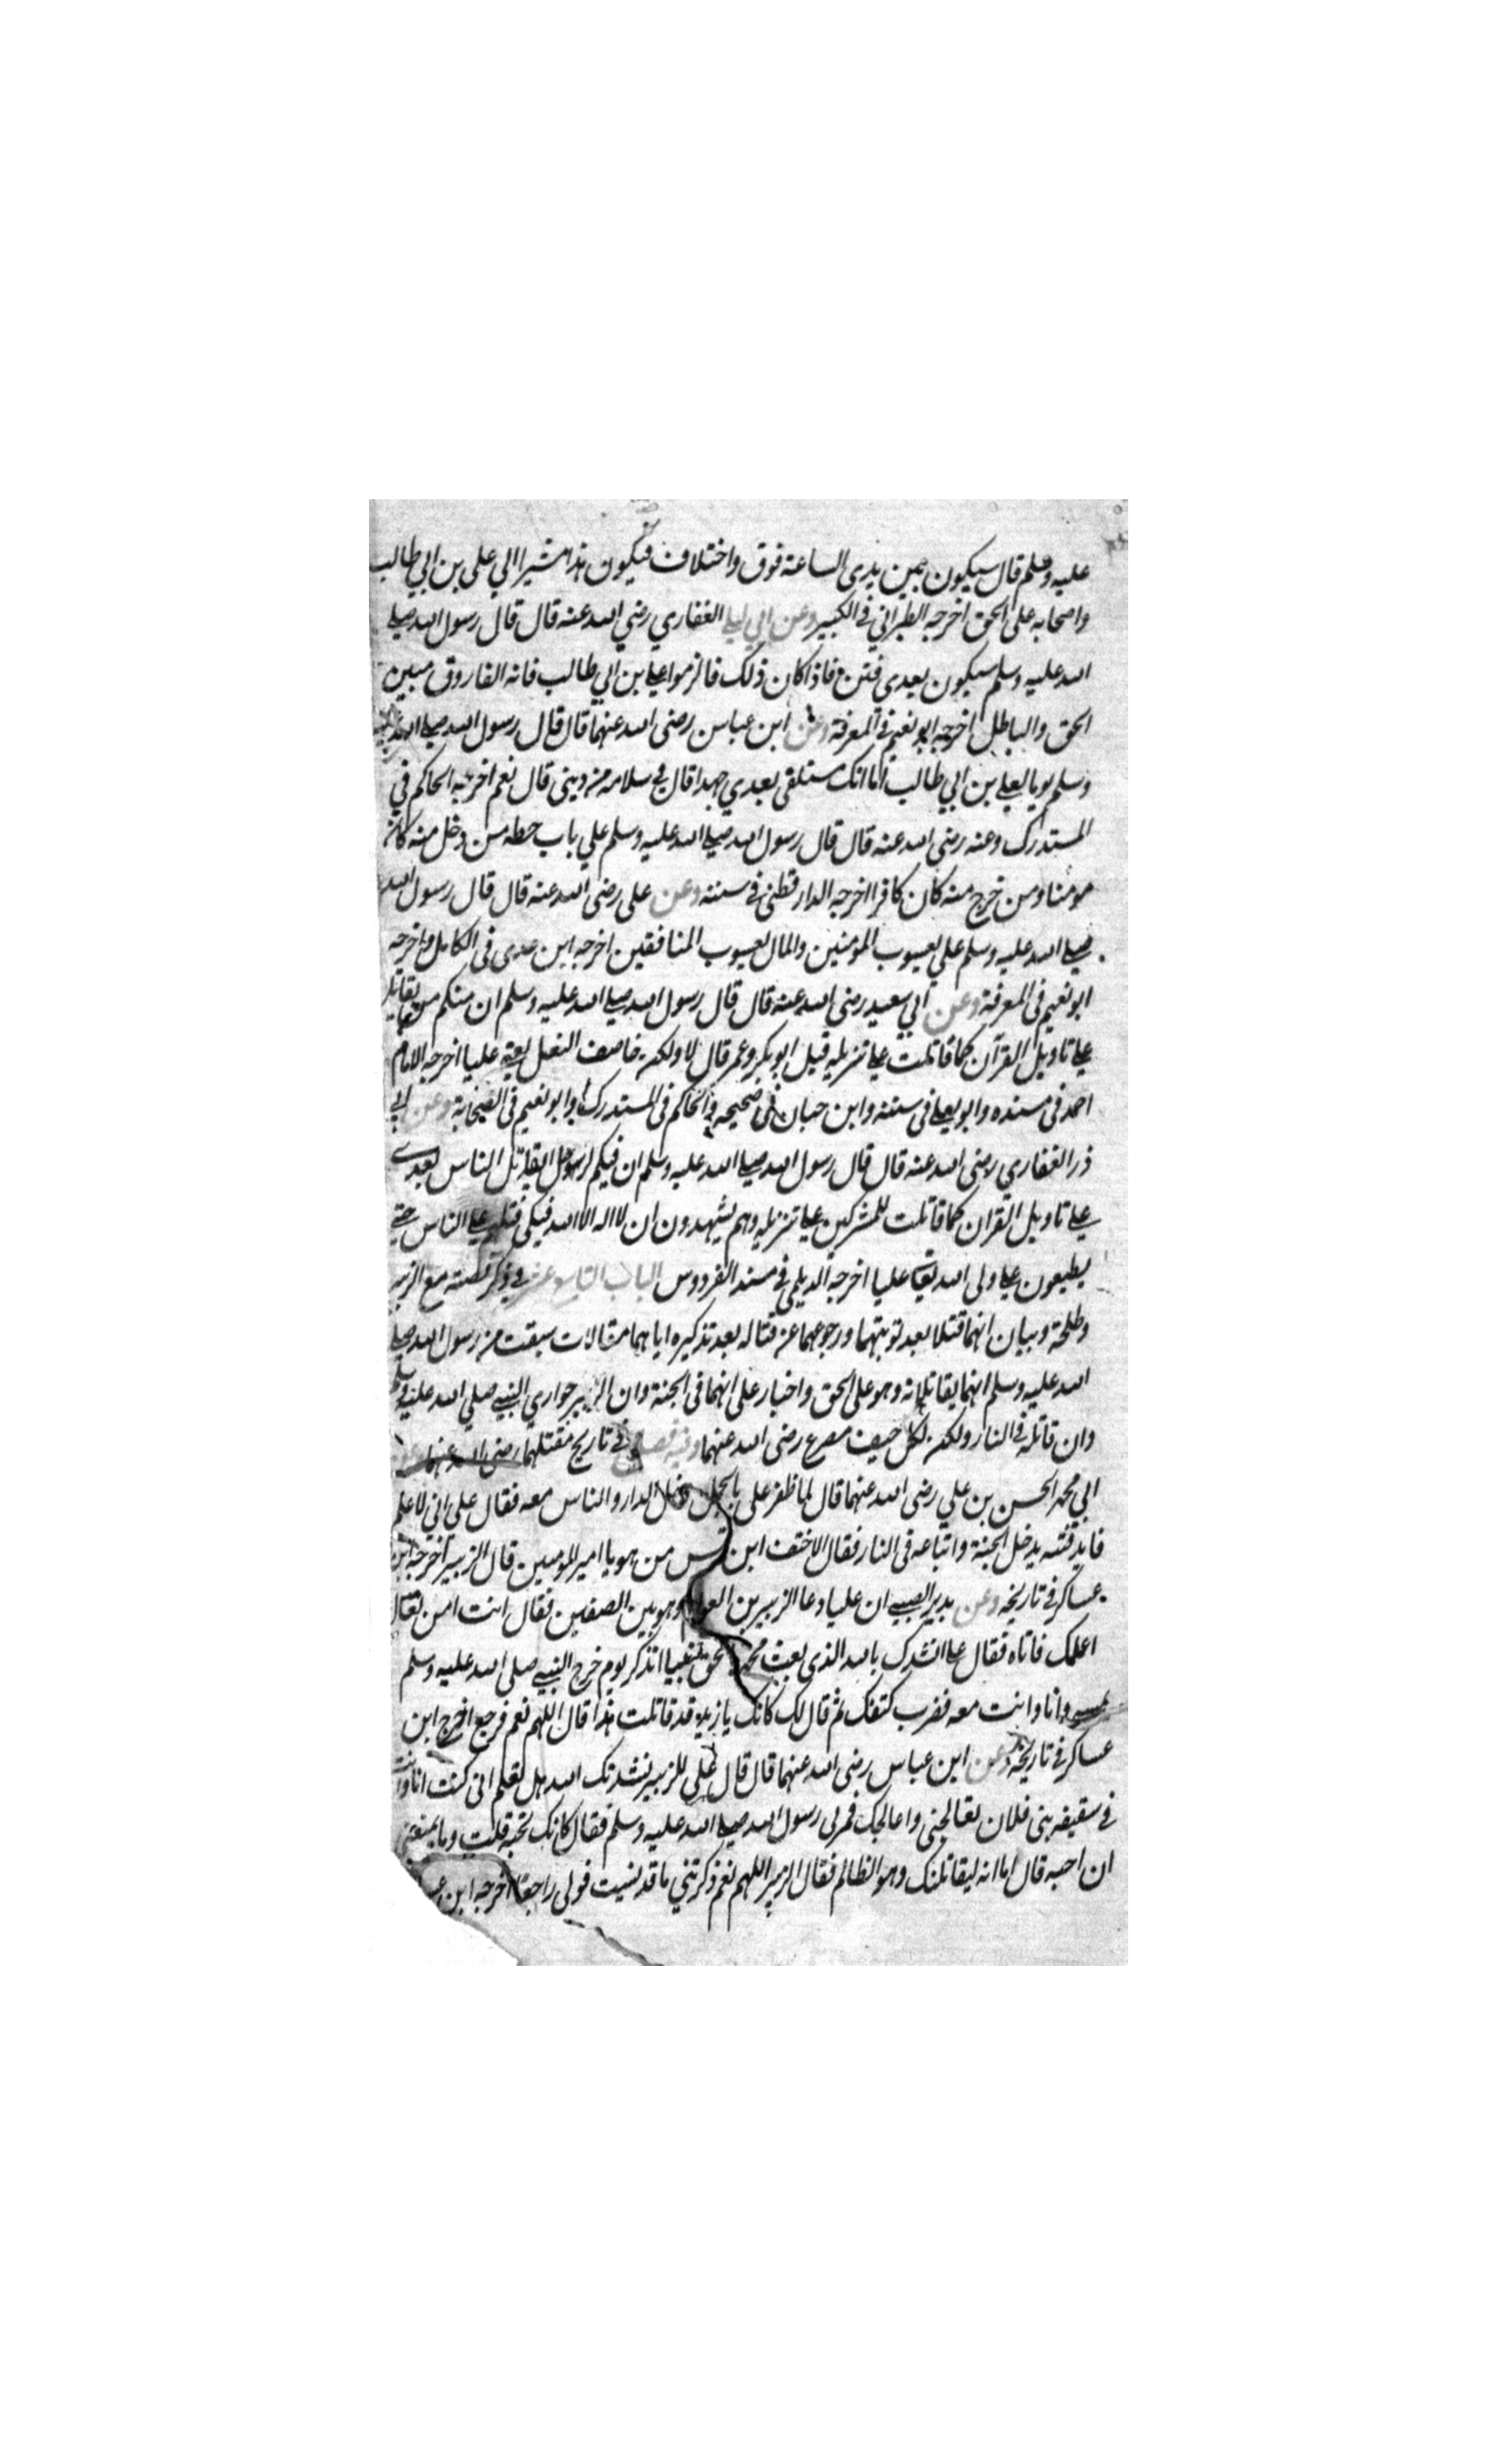 عليه وسلم قال سيكون بين يدى الساعة فوق واختلاف فيكون هذا مشيرا الي على بن ابي طالب
واصحابه على الحق اخرجه الطبراني في الكبير وعن ابي ليلى الغفاري رضي الله عنه قال قال رسول الله صلى
الله عليه وسلم سيكون بعدى فتن فاذا كان ذلك فالزموا على بن ابي طالب فانه الفاروق مبين
الحق والباطل اخرجه ابو نعيم في المعرفة وعن ابن عباس رضى الله عنهما قال قال رسول الله صلى الله عليه
وسلم يوما لعلي بن ابي طالب اما انك ستلقى بعدي جهدا قال في سلامه من دينى قال نعم اخرجه الحاكم في
المستدرك وعنه رضى الله عنه قال قال رسول الله صلى الله عليه وسلم علي باب حطه من دخل منه كان
مومنا ومن خرج منه كان كافرا اخرجه الدارقطنى في سننه وعن على رضى الله عنه قال قال رسول الله
صلى الله عليه وسلم علي يعسوب المومنين والمال يعسوب المنافقين اخرجه ابن عدى فى الكامل واخرجه
ابو نعيم فى المعرفة وعن ابي سعيد رضى الله عنه قال قال رسول الله صلى الله عليه وسلم ان منكم من يقاتل
على تاويل القرآن كما قاتلت على تنزيله قيل ابو بكر وعمر قال لا ولكن خاصف النعل يعني عليا اخرجه الامام
احمد فى مسنده وابو يعلى فى سننه وابن حبان فى صحيحه والحاكم فى المستدرك وابو نعيم فى الصحابة وعن ابي
ذر الغفاري رضى الله عنه قال قال رسول الله صلى الله عليه وسلم ان فيكم لرجل يقاتل الناس بعدى
على تاويل القران كما قاتلت للمشركين على تنزيله وهم يشهدون ان لا اله الا الله فيكى قتلهم على الناس حتى
يطيعون على ولى الله يعنى عليا اخرجه الديلمى فى مسند الفردوس الباب التاسع عشر في ذكر قصته مع الزبير
وطلحة وبيان انهما قتلا بعد توبتهما ورجوعهما عن قتاله بعد تذكيره اياهما مقالات سبقت من رسول الله صلى
الله عليه وسلم انهما يقاتلانه وهو على الحق واخبار على انهما فى الجنة وان الزبير حواري النبي صلي الله عليه وسلم
وان قاتله في النار ولكن لكل حيف مصرع رضى الله عنهما وفيه فصل في تاريخ مقتلهما رضى الله عنهما عن
ابي محمد الحسن بن علي رضى الله عنهما قال لما ظفر على بالجمل دخل الدار والناس معه فقال على انى لاعلم
قايد فتنه يدخل الجنة واتباعه فى النار فقال الاحنف ابن قيس من هو يا امير المومنين قال الزبير اخرجه ابن
عساكر في تاريخه وعن يدير الضبي ان عليا دعا الزبير بن العوام وهو بين الصفين فقال انت امن تعال
اعلمك فاتاه فقال على انشدك بالله الذى بعث محمدا بالحق نبيا اتذكر يوم خرج النبي صلى الله عليه وسلم
وانا وانت معه فضرب كتفك ثم قال لك كانك يا زبير قد قاتلت هذا قال اللهم نعم فرجع اخرج ابن
عساكر في تاريخه وعن ابن عباس رضى الله عنهما قال قال على للزبير نشدتك الله هل تعلم انى كنت انا وانت
في سقيفه بنى فلان تعالجنى واعالجك فمر بى رسول الله صلى الله عليه وسلم فقال كانك تحبه قلت وما يمنعنى
ان احبه قال اما انه ليقاتلنك وهو الظالم فقال الزبير اللهم نعم ذكرتني ما قد نسيت فولى راجعا اخرجه ابن